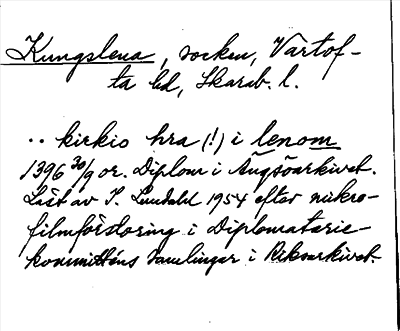 Kungslena, socken, Vartof-
ta hd, Skarab. l.
.. kirkio hra (!) i lenom
1396 30/9 or. Diplom i Ängsöarkivet.
Läst av I. Lundahl 1954 efter mikro-
filmförstoring i Diplomatarie-
kommitténs samlingar i Riksarkivet.